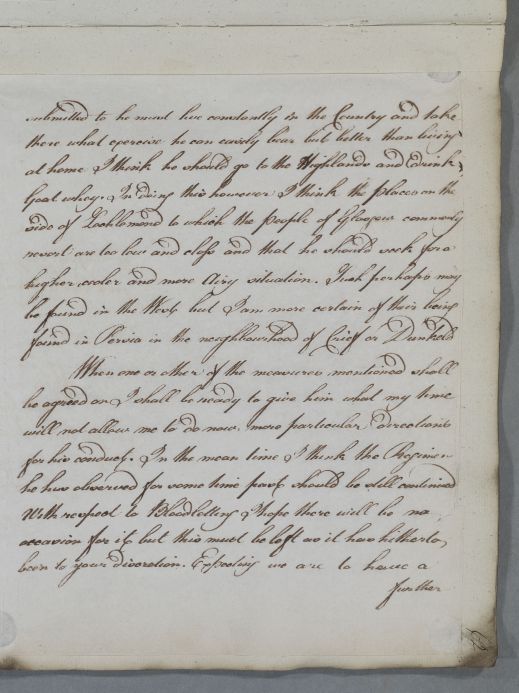 submitted to he must live constantly in the Country and take
there what exercise he can easily bear but better than living
at home I think he should go to the Highlands and drink
Goat whey. In doing this however I think the places on the
side of Lochlomond to which the people of Glasgow commonly
resort are too low and close and that he should seek for a
higher, cooler and more Airy situation. Such perhaps may
be found in the West but I am more certain of their being
found in Persia in the neighbourhood of Crief or Dunkeld
When one or other of the measures mentioned shall
be agreed on I shall be ready to give him what my time
will not allow me to do now more particular directions
for his conduct. In the mean time I think the Regimen
he has observed for some time past should be still continued
With respect to Bloodletting I hope there will be no
occasion for it but this must be left as it has hitherto,
been to your discretion. Expecting we are to have a
further